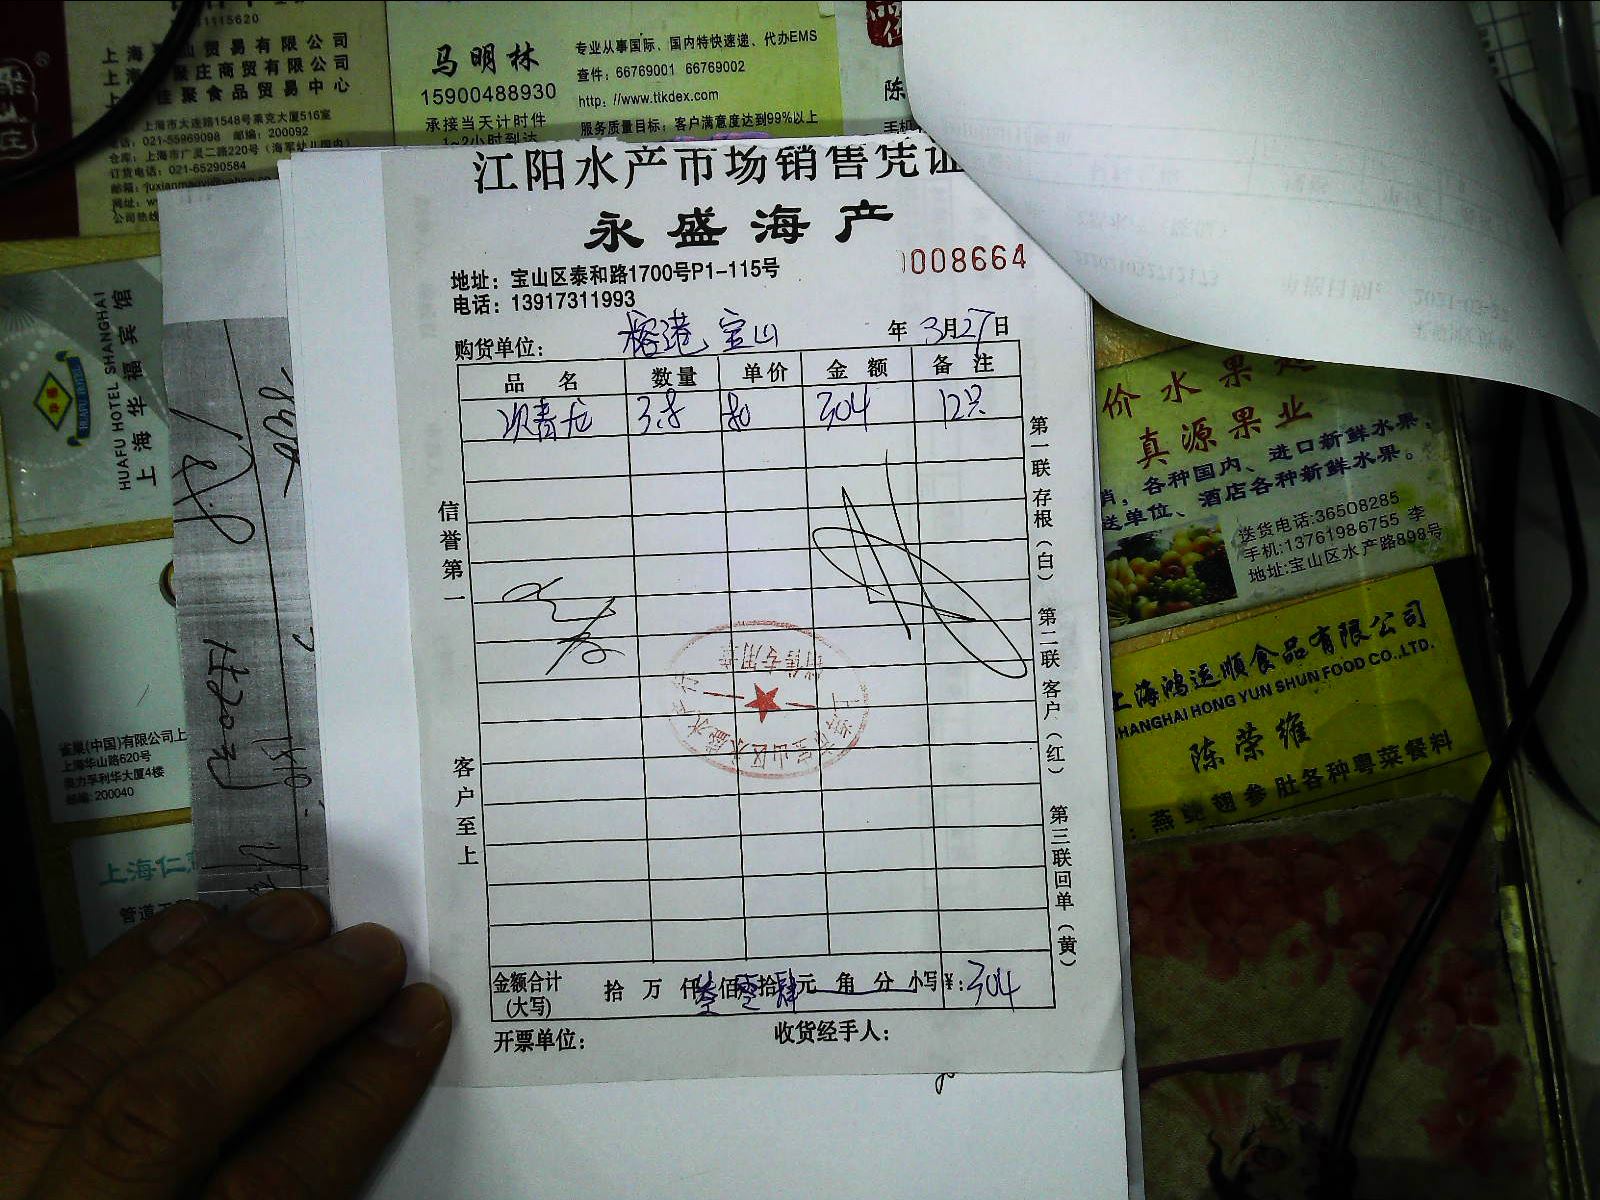 1115620
上海 山贸易有限公司
上 聚庄商贸有限公司
佳聚食品贸易中心
上海市大连路1548号莱克大厦516室
电话: 021-55969098 邮编: 200092
仓库: 上海市广灵二路220号 (海军幼儿园内)
订货电话: 021-65290584
邮箱:
网址:
公司热线
马明林
15900488930
承接当天计时件
1~2小时到达
专业从事国际、国内特快速递、代办EMS
查件: 66769001 66769002
http: //www.ttkdex.com
服务质量目标: 客户满意度达到99%以上
陈
手机
江阳水产市场销售凭证
永盛海产
地址: 宝山区泰和路1700号P1-115号
电话: 13917311993
0008664
购货单位: 榕港 宝山 年 3月27日
品名 数量 单价 金额 备注
次青龙 3.8 80 304 12只
信誉第一
客户至上
第一联 存根 (白) 第二联 客户 (红) 第三联 回单 (黄)
金额合计 (大写) 拾 万 仟 叁佰 零拾 肆元 角 分 小写¥: 304
开票单位: 收货经手人:
HUAFU HOTEL SHANGHAI
上海华福宾馆
雀巢(中国)有限公司上
上海华山路620号
良力孚利华大厦4楼
邮编: 200040
上海仁
管道工
价水果
真源果业
销, 各种国内、进口新鲜水果,
送单位、酒店各种新鲜水果。
送货电话:36508285
手机:13761986755 李
地址:宝山区水产路898号
上海鸿运顺食品有限公司
SHANGHAI HONG YUN SHUN FOOD CO.,LTD.
陈荣维
: 燕鲍翅参肚各种粤菜餐料